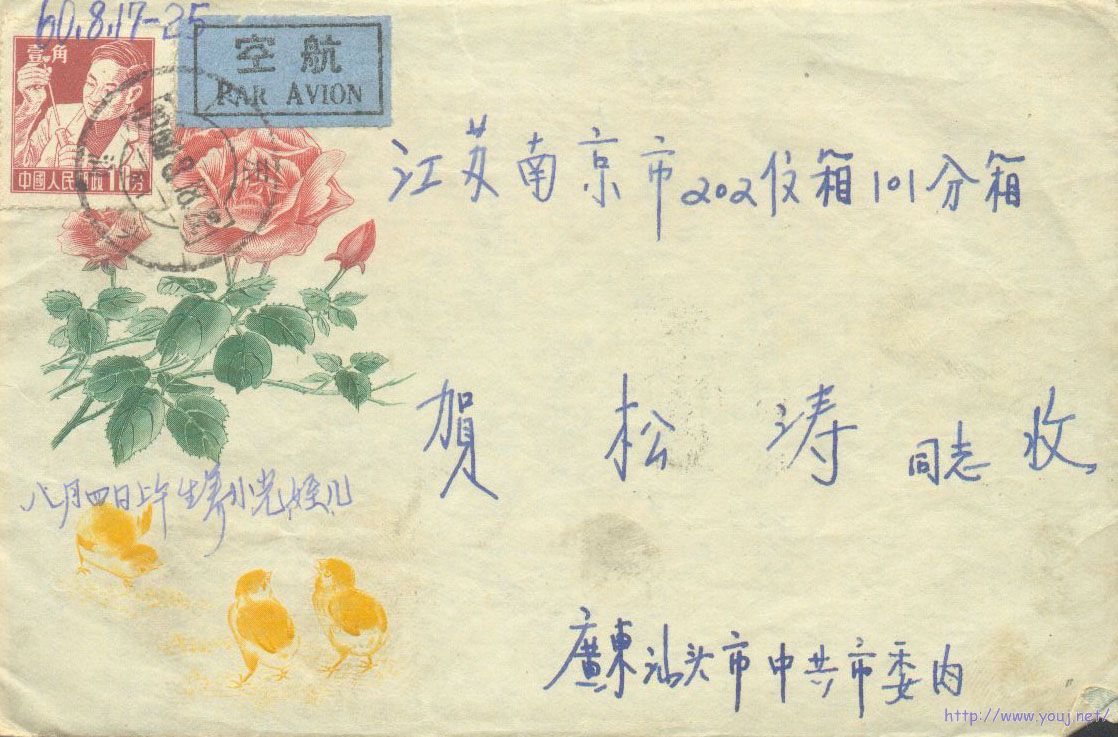 60.8.17-25
壹角
空航
PAR AVION
中國人民邮政10分
江苏南京市202伩箱101分箱
賀松涛同志收
八月四日上午生养小光姪儿
廣東汕头市中共市委内
http://www.youj.net/